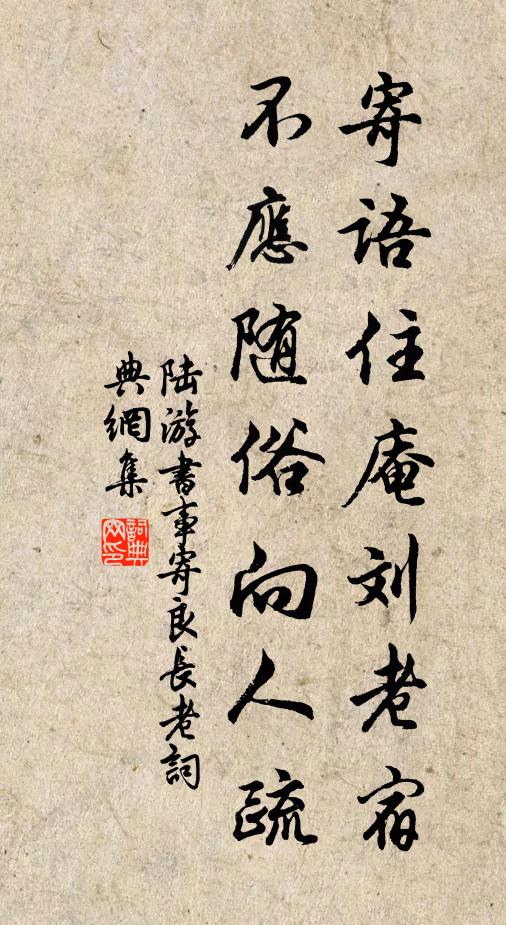 寄語住庵刘老宿
不應随俗向人疏
陆游書事寄良長老詞
典網集
詞典
网印